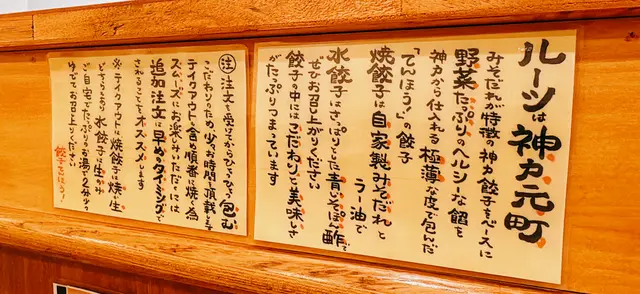 ルーツは神戸元町
みそだれが特徴の神戸餃子をベースに
野菜たっぷりのヘルシーな餡を
神戸から仕入れる極薄な皮で包んだ
「てんほう」の餃子
焼餃子は自家製みそだれと
ラー油で
水餃子はさっぱりとした青じそぽん酢で
ぜひお召し上がりください
餃子の中にはこだわりと美味しさ
がたっぷりつまっています
注 注文を受けてからひとつひとつ包む
こだわりのため少々お時間頂戴します
テイクアウトも含め順番に焼く為
スムーズにお楽しみいただくには
追加注文は早めのタイミングで
されることをオススメします
※テイクアウトは焼餃子は焼か生
どちらもあり 水餃子は生のみ
ご自宅でたっぷりのお湯で2分少々
ゆでてお召し上がりください
餃子てんほう!